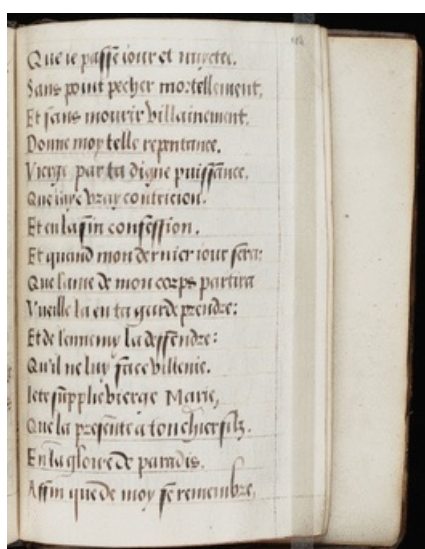 Que ie passe iour et nuyctee.
Sans point pecher mortellement,
Et sans mourir villainement,
Donne moy telle repentance.
Vierge par ta digne puissance,
Que iaye vray contricion.
Et en la fin confession.
Et quand mon dernier iour sera:
Que lame de mon corps partira
Vueille la en ta garde prendre:
Et de lennemy la deffendre:
Qu'il ne luy face villenie.
Ie te supplie vierge Marie,
Que la presente a ton chier filz.
En la gloire de paradis.
Affin que de moy se remembre,